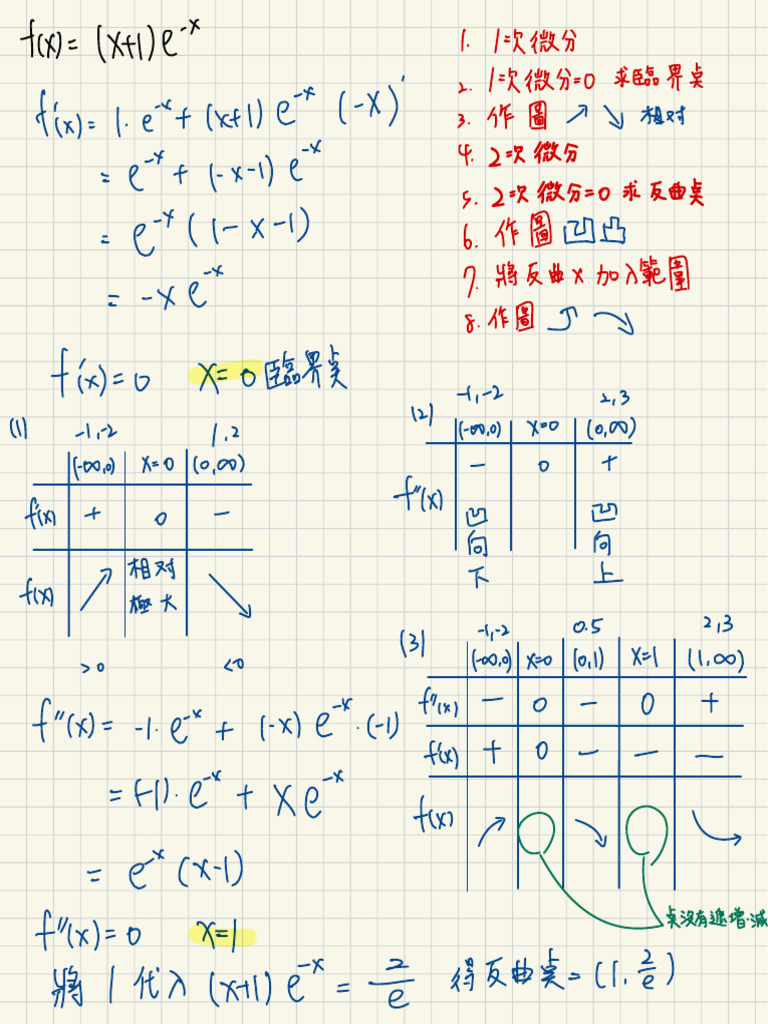 f(x) = (x+1)e^-x
f'(x) = 1·e^-x + (x+1) e^-x (-x)'
= e^-x + (-x-1) e^-x
= e^-x (1-x-1)
= -x e^-x
f'(x) = 0 x=0 臨界点
1. 1次微分
2. 1次微分=0 求臨界点
3. 作圖 ↗ ↘ 相対
4. 2次微分
5. 2次微分=0 求反曲点
6. 作圖 凹凸
7. 將反曲x加入範圍
8. 作圖
(1)
-1,-2 1,2
(-∞,0) x=0 (0,∞)
f'(x) + 0 -
f(x) ↗ 相対 ↘
極大
>0 <0
(2)
-1,-2 2,3
(-∞,0) x=0 (0,∞)
f''(x) - 0 +
凹 凹
向 向
下 上
f''(x) = -1·e^-x + (-x) e^-x·(-1)
= (-1)·e^-x + x e^-x
= e^-x (x-1)
f''(x) = 0 x=1
(3)
-1,-2 0.5 2,3
(-∞,0) x=0 (0,1) x=1 (1,∞)
f''(x) - 0 - 0 +
f'(x) + 0 - - -
f(x)
点沒有遞增·減
將 1 代入 (x+1) e^-x = 2/e 得反曲点 = (1, 2/e)